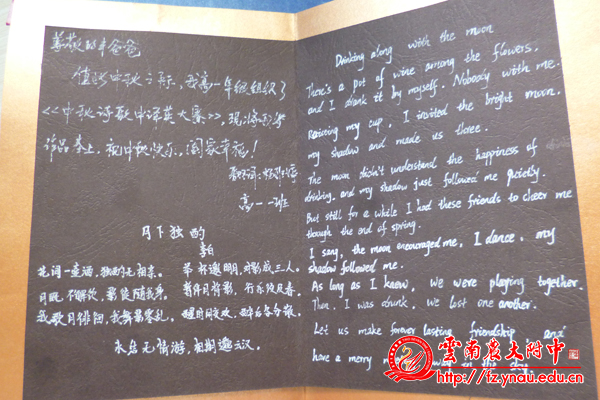 尊敬的丰爸爸
值此中秋之际，我高一年级组织了
《中秋诗歌中译英大赛》，现将获奖
作品奉上，祝中秋快乐，阖家幸福！
高一一班
月下独酌
李白
花间一壶酒，独酌无相亲。 举杯邀明月，对影成三人。
月既不解饮，影徒随我身。 暂伴月将影，行乐须及春。
我歌月徘徊，我舞影零乱。 醒时同交欢，醉后各分散。
永结无情游，相期邈云汉。
Drinking along with the moon
There's a pot of wine among the flowers,
and I drank it by myself. Nobody with me.
Raising my cup, I invited the bright moon.
my shadow and made us three.
The moon didn't understand the happiness of
drinking, and my shadow just followed me quietly.
But still for a while I had these friends to cheer me
though the end of spring.
I sang, the moon encouraged me, I dance, my
shadow followed me.
As long as I knew, we were playing together.
Then, I was drunk, we lost one another.
Let us make forever lasting friendship and
have a merry
雲南農大附中
http://fz.ynau.edu.cn